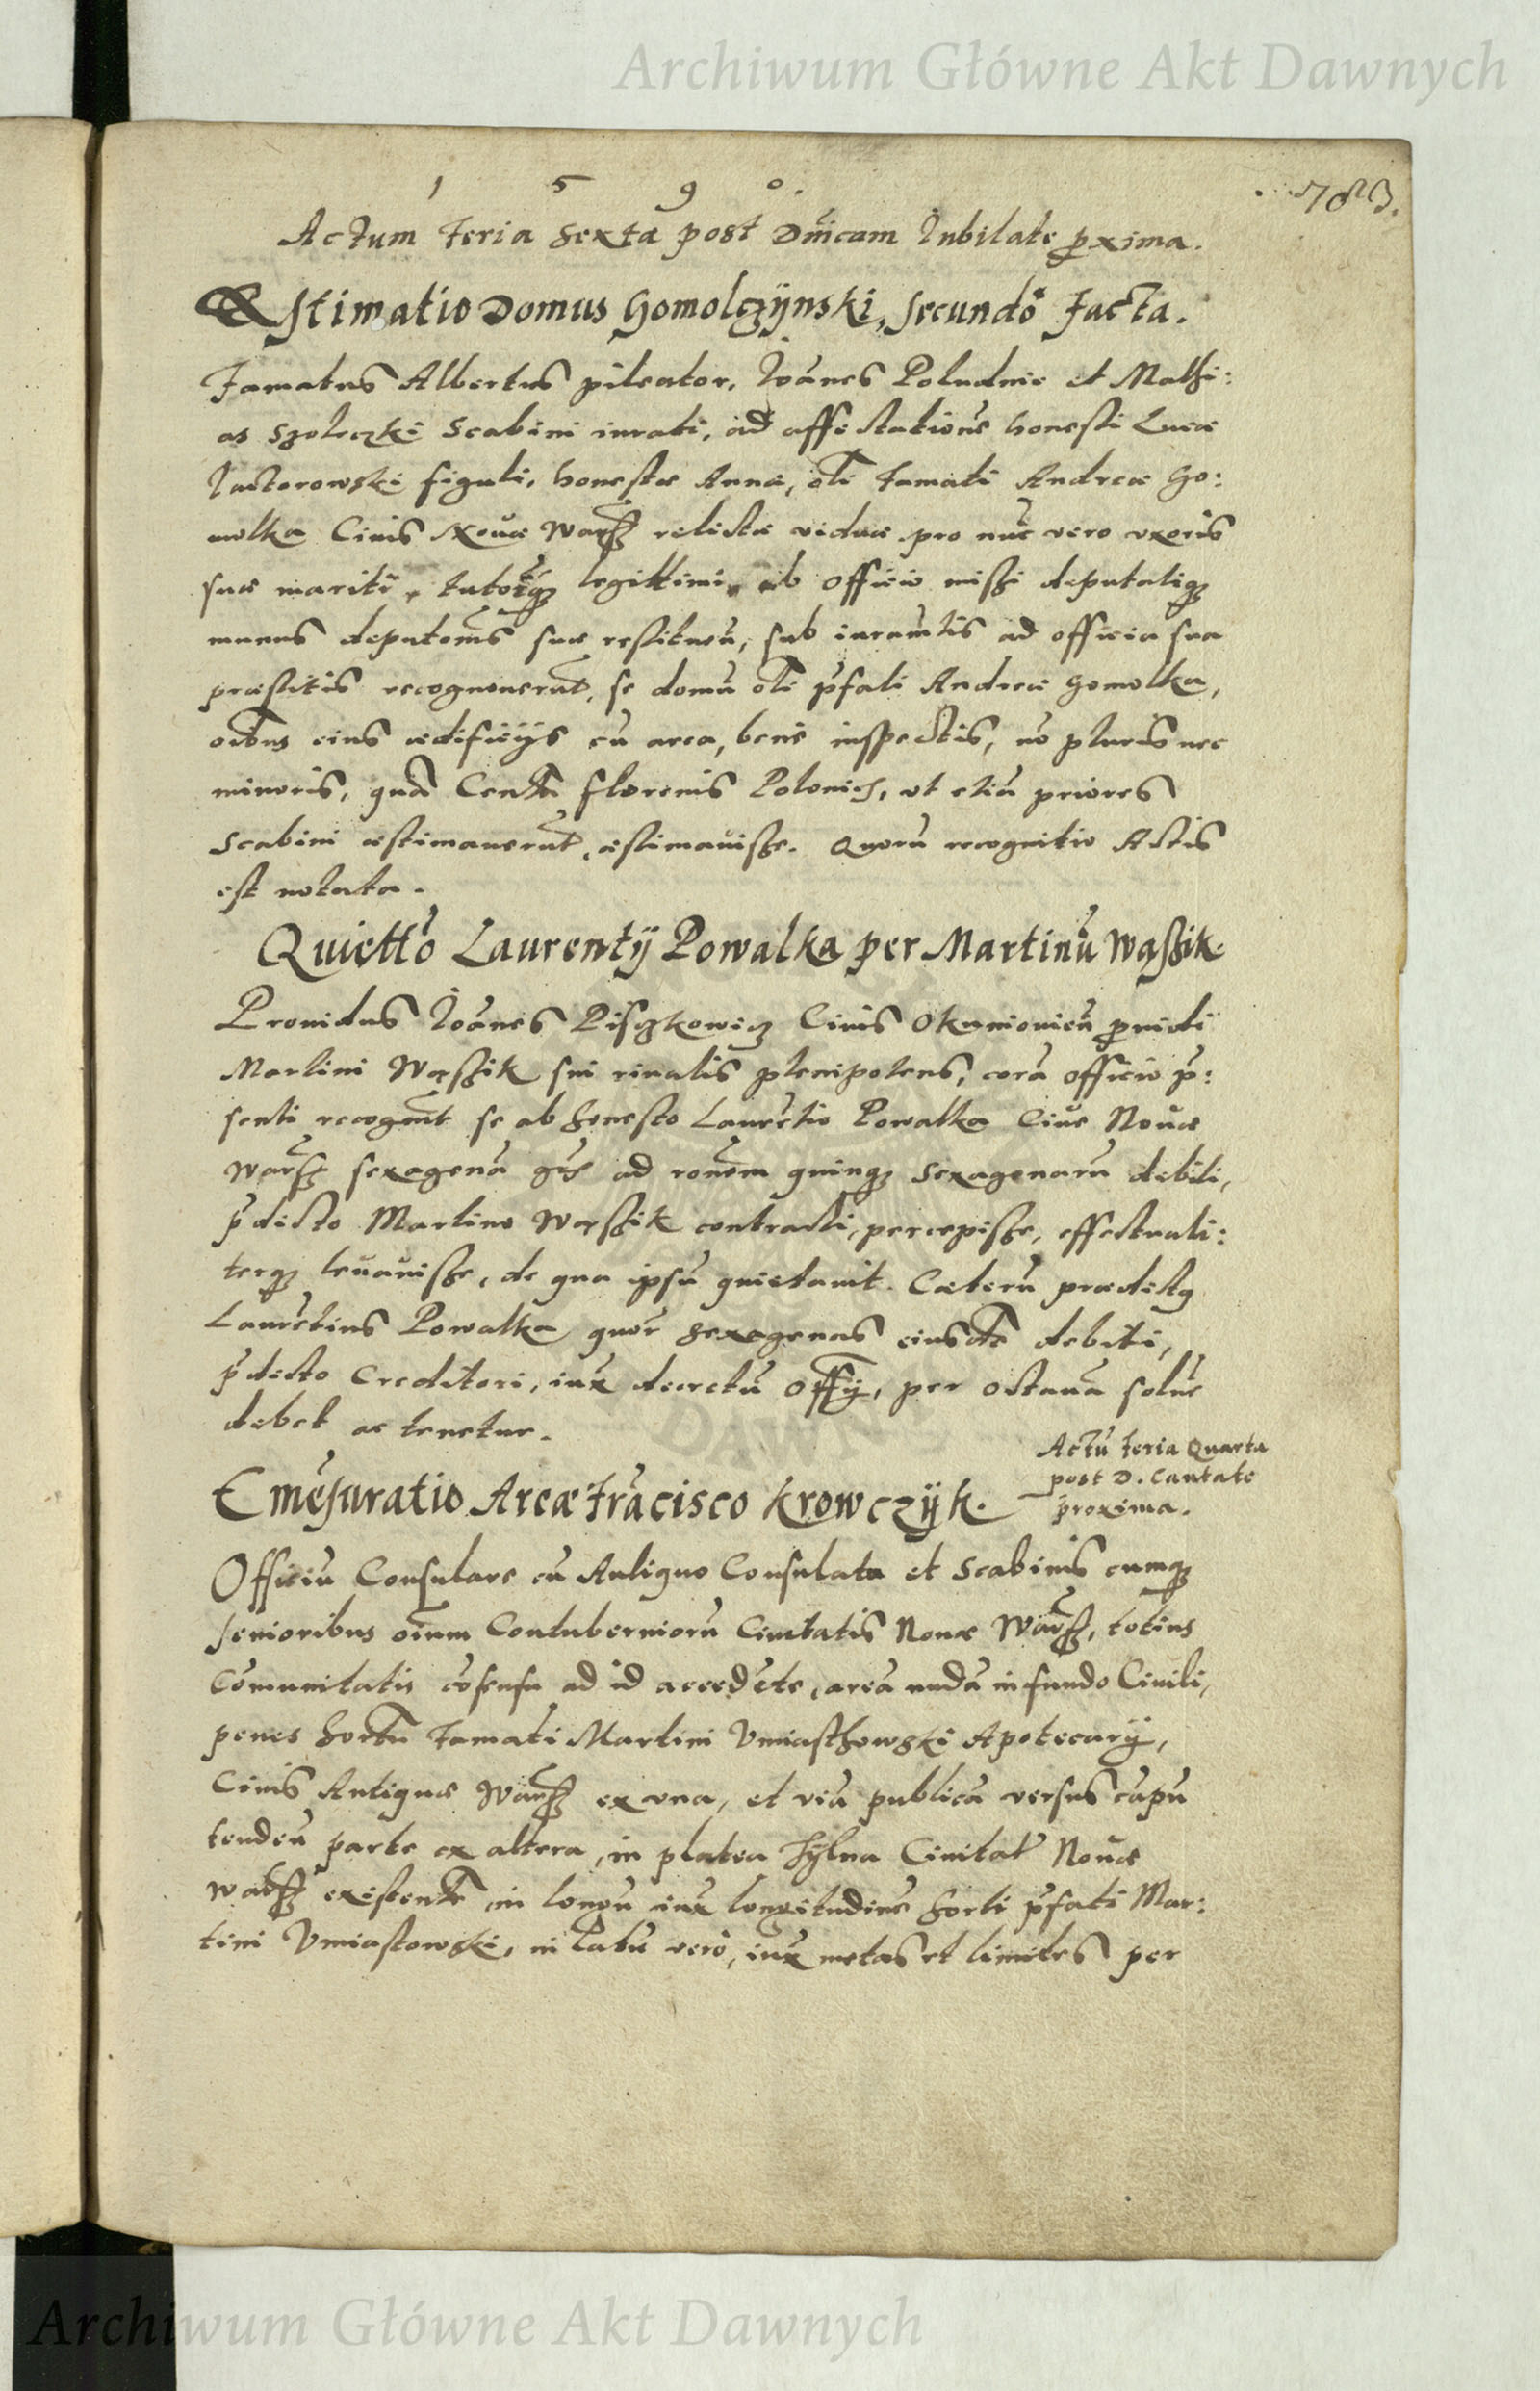 Archiwum Główne Akt Dawnych
1 5 9 0.
783.
Actum Feria Sexta post Dnicam Iubilate pxima.
Æstimatio Domus Homolczÿnski, secundo facta.
Famatus Albertus pileator, Ioanes Poludnie et Mathi:
as Szoleczki Scabini iurati, ad affectatione honesti Lucæ
Iactorowski figuli, honestæ Annæ, oli Famati Andreæ Ho:
molka Civis Novæ Warß relictæ viduæ pro nuc vero uxoris
suæ mariti, tutorisq legittimi, ab officio missi deputatiq
munus deputonis suæ restituen, sub iuramtis ad officia sua
præstitis recognoverut, se domu oli pfati Andreæ Homolka,
oibus eius ædificijs cu area, bene inspectis, no pluris nec
minoris, qua Centu florenis Polonic, ut etia priores
Scabini æstimaverut, æstimavisse. Quoru recognitio Actis
est notata.
Quietto Laurentÿ Powalka per Martinu Waßik.
Providus Ioanes Piszkowicz Civis Okunioviens providi
Martini Wąssik sui rivalis plenipotens, cora officio p:
senti recognit se ab honesto Lauretio Powalka Cive Novæ
Warß sexagena gros ad ronem quinq sexagenaru debiti,
pdicto Martino Wąssik contracti, percepisse, effectuali:
terq levavisse, de qua ipsu quietavit. Cæteru prædictq
Lauretius Powalka quor sexagenas eiusde debiti,
pdicto Creditori, iux decretu Offÿ, per octava solue
debet ac tenetur.
Actu feria Quarta
post D. Cantate
proxima.
Emesuratio Areæ Fracisco Krowczÿk.
Officiu Consulare cu Antiquo Consulatu et Scabinis cumq
senioribus oium Contubernioru Civitatis Novæ Warß, totius
Comunitatis cosensu ad id accedete, area nuda in fundo Civili,
penes hortu Famati Martini Umiasthowski Apotecarÿ,
Civis Antiquæ Warß ex una, et via publica versus capu
tenden parte ex altera, in platea Zÿlna Civitat Novæ
Warß existente in longu iux longitudine horti pfati Mar:
tini Umiastowski, in latu vero, iux metas et limites per
Archiwum Główne Akt Dawnych